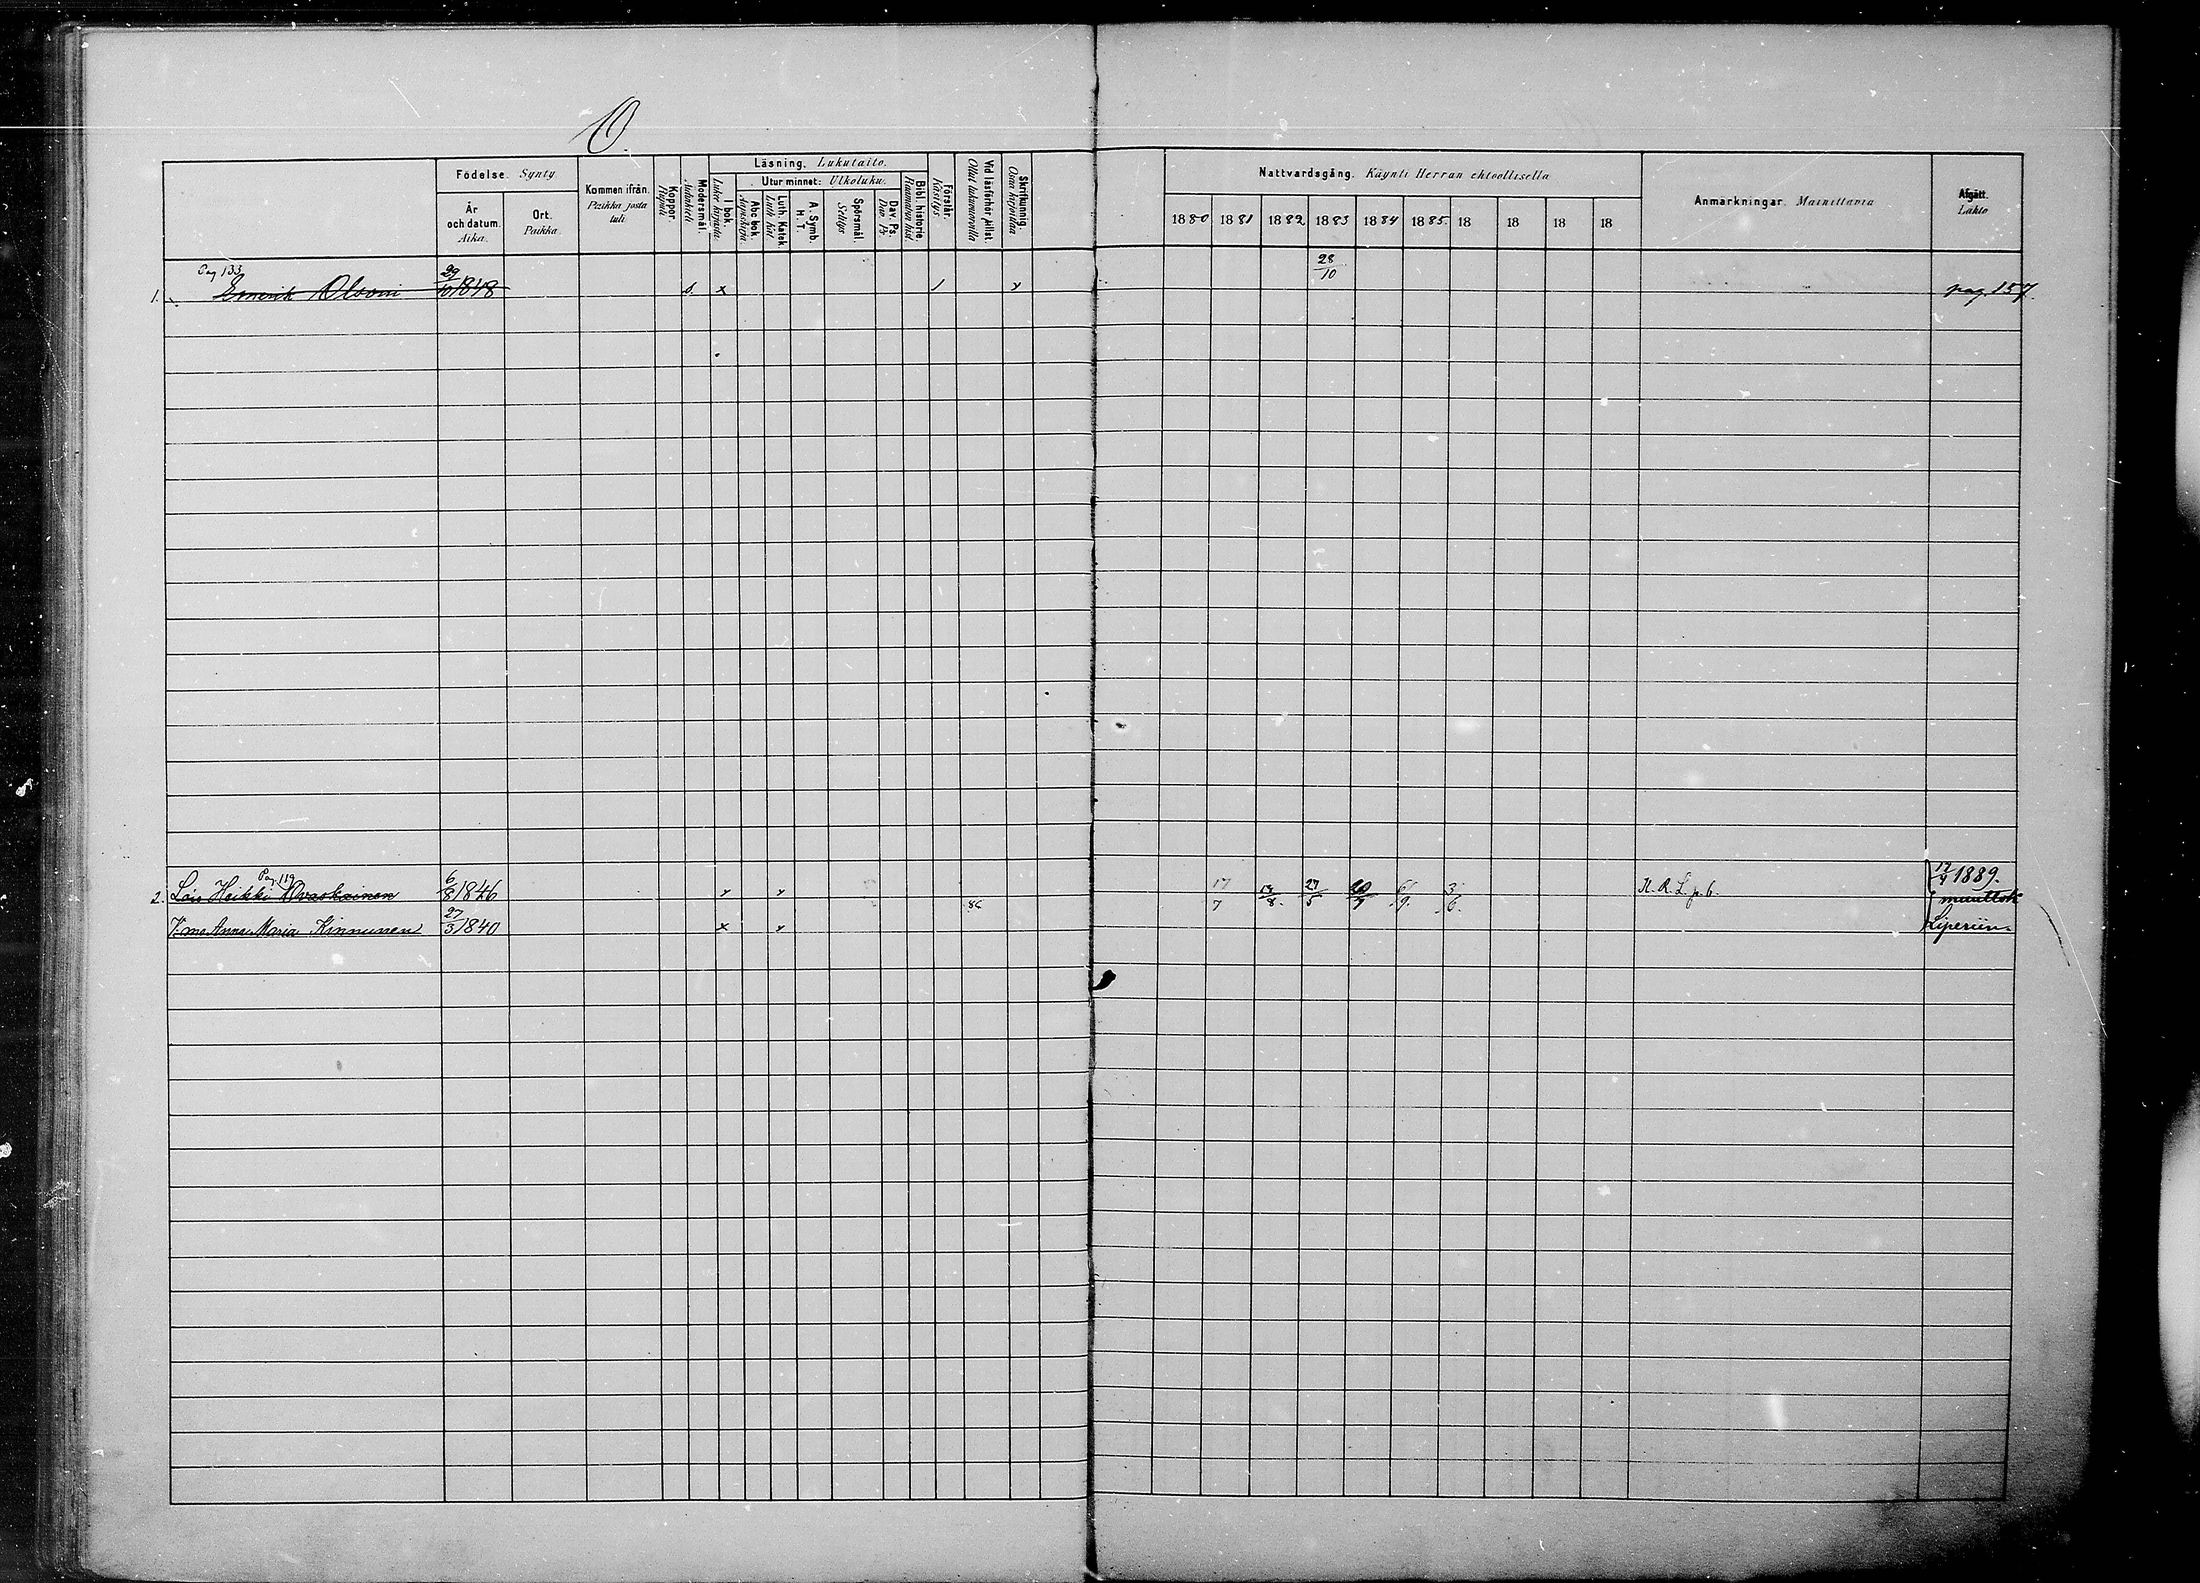 O.
Födelse. Synty.
År och datum. Aika.
Ort. Paikka.
Kommen ifrån. Paikka josta tuli.
Koppor. Rupuli.
Modersmål.
Läsning. Lukutaito.
I bok. Lukee kirjasta.
Utur minnet: Ulkoluku.
Abc bok. Aapiskirja.
Luth. Katek. Luth. Kat.
A. Symb. H. T.
Spörsmål. Selitys
Dav. Ps. Dav. Ps
Bibl. historie. Raamatun hist.
Förstår. Käsitys.
Vid läsförhör tillst. Ollut lukukunnilla
Skrifkunnig. Osaa kirjoittaa
Nattvardsgång. Käynti Herran ehtoollisella
1880 1881 1882 1883 1884 1885. 18 18 18 18
Anmärkningar. Mainittavia
Afgått. Lähtö
Pag 133
28/10
1. Emerik Olsoni 29/10 1848 s. x 1 x pag. 157.
Pag. 119
2. Lois Heikki Ovaskainen 6/8 1846 x x 86 17/7 14/8. 27/5 20/7 6/9. 3/6. K. R. L. p. 6. 12/9 1889.
muuttok
V:mo Anna Maria Kinnunen 27/3 1840 x x Liperiin.